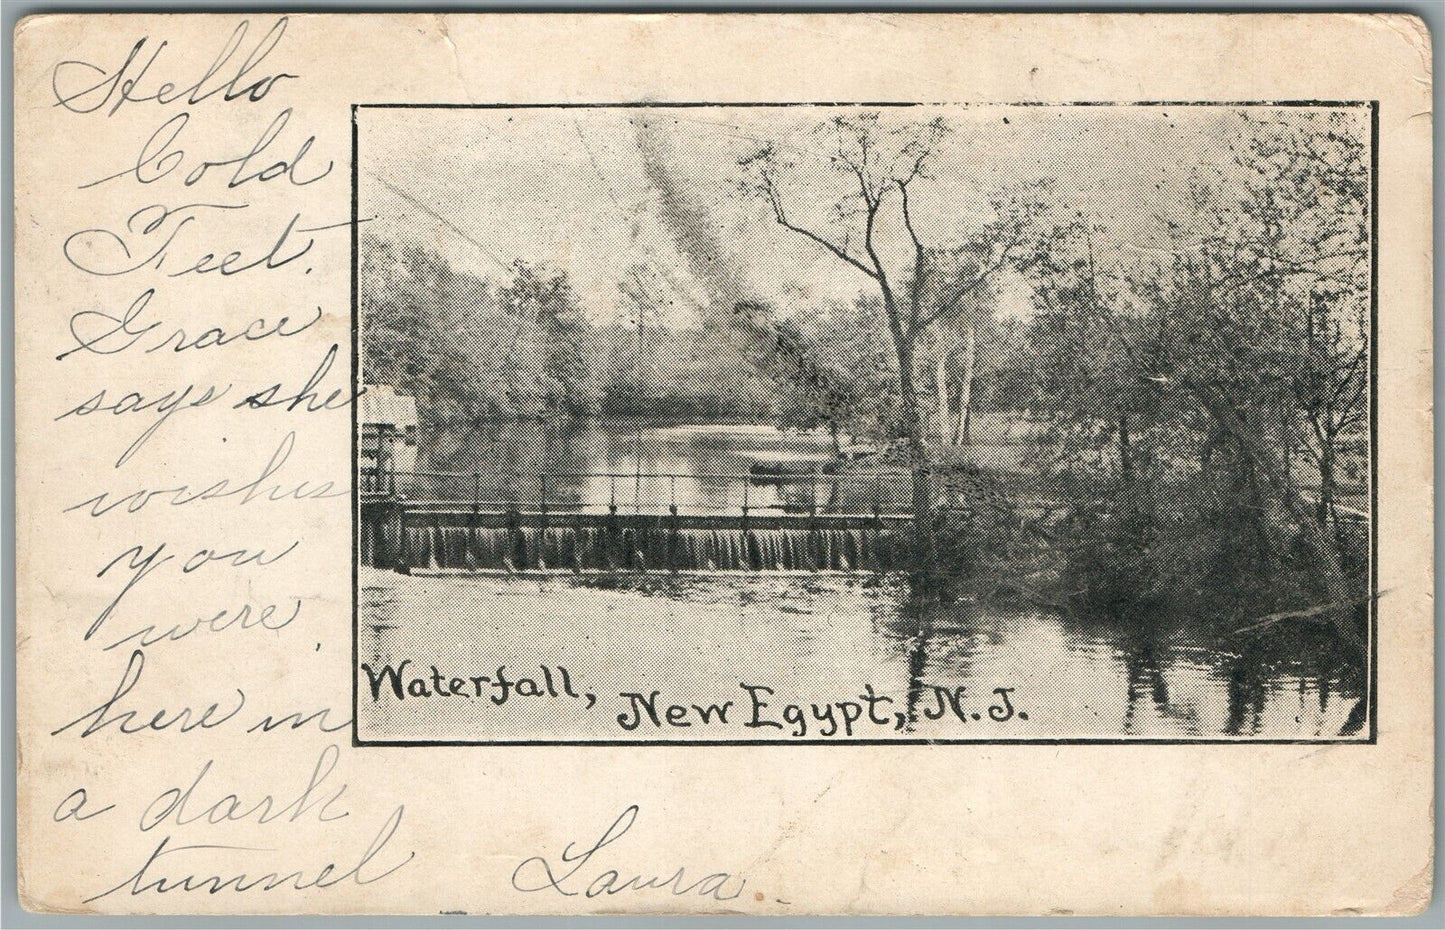 Hello
Cold
Feet.
Grace
says she
wishes
you
were
here in
a dark
tunnel
Laura.
Waterfall, New Egypt, N.J.